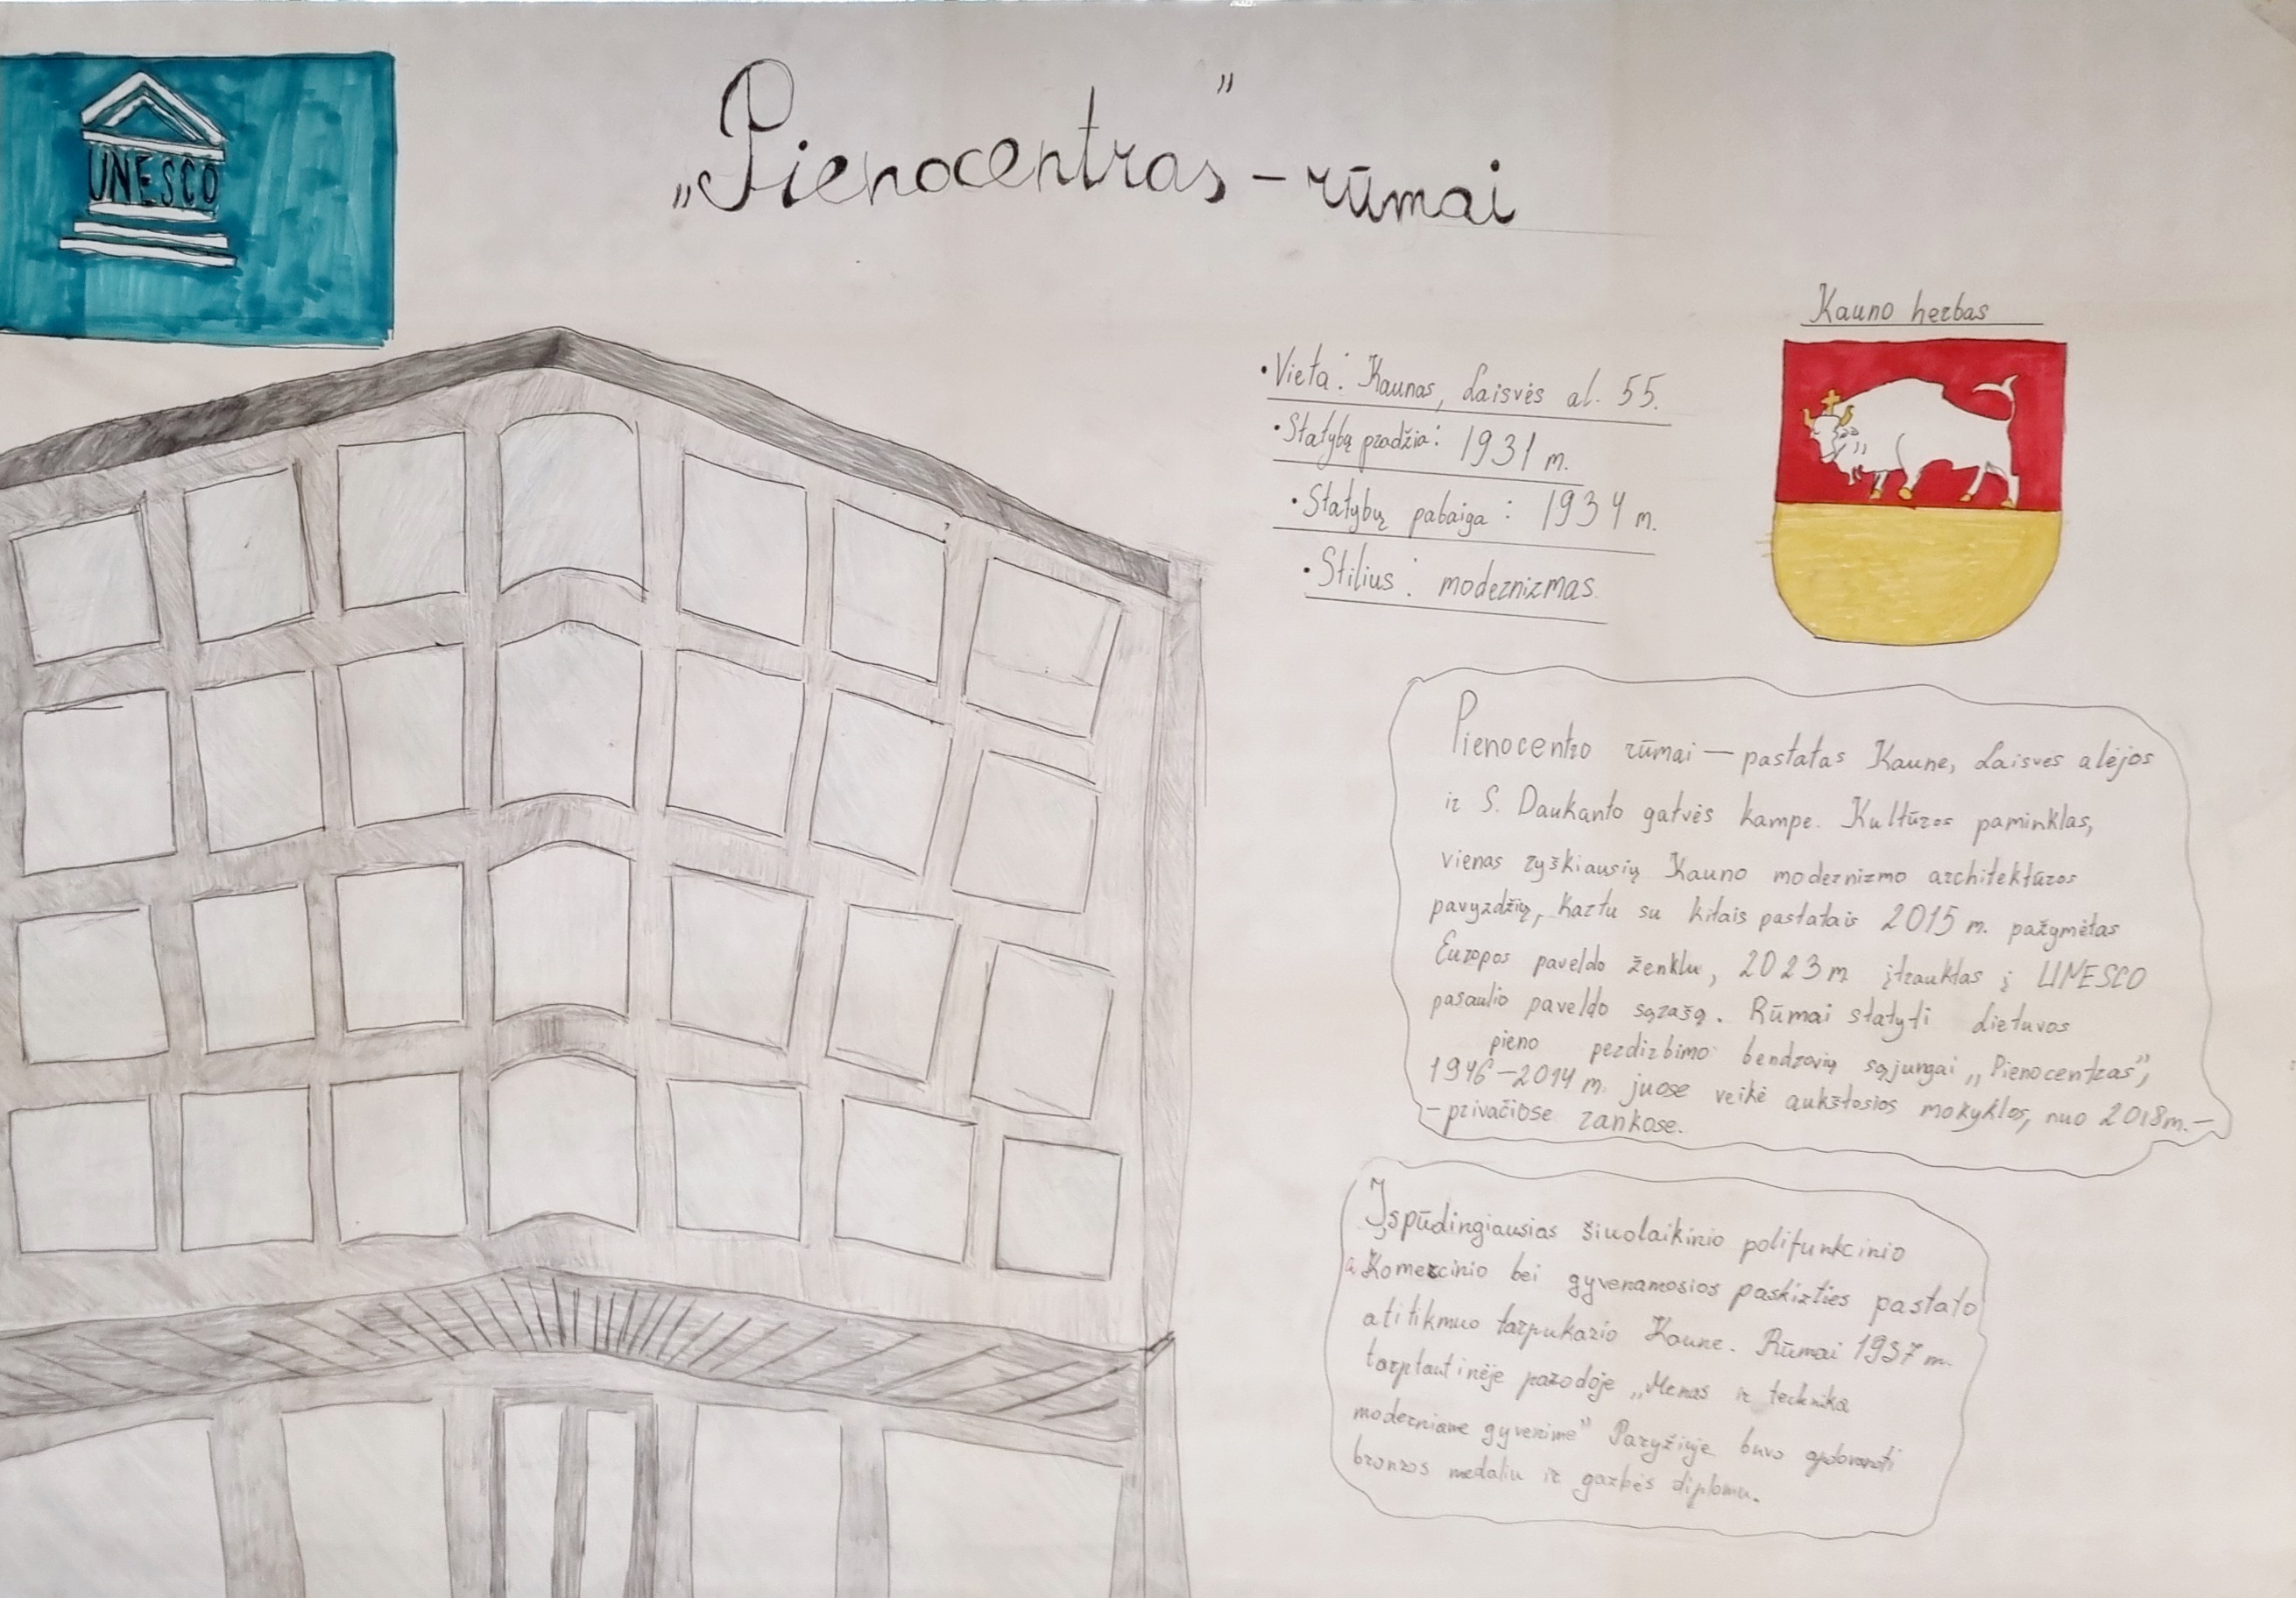 UNESCO
„Pienocentras" – rūmai
Kauno herbas
• Vieta: Kaunas, Laisvės al. 55.
• Statybų pradžia: 1931 m.
• Statybų pabaiga: 1934 m.
• Stilius: modernizmas
Pienocentro rūmai — pastatas Kaune, Laisvės alėjos
ir S. Daukanto gatvės kampe. Kultūros paminklas,
vienas ryškiausių Kauno modernizmo architektūros
pavyzdžių, kartu su kitais pastatais 2015 m. pažymėtas
Europos paveldo ženklu, 2023 m įtrauktas į UNESCO
pasaulio paveldo sąrašą. Rūmai statyti Lietuvos
pieno perdirbimo bendrovių sąjungai „Pienocentras",
1946–2014 m. juose veikė aukštosios mokyklos, nuo 2018m.–
– privačiose rankose.
Įspūdingiausias šiuolaikinio polifunkcinio
a Komercinio bei gyvenamosios paskirties pastato
atitikmuo tarpukario Kaune. Rūmai 1937 m.
tarptautinėje parodoje „Menas ir technika
moderniame gyvenime" Paryžiuje buvo apdovanoti
bronzos medaliu ir garbės diplomu.